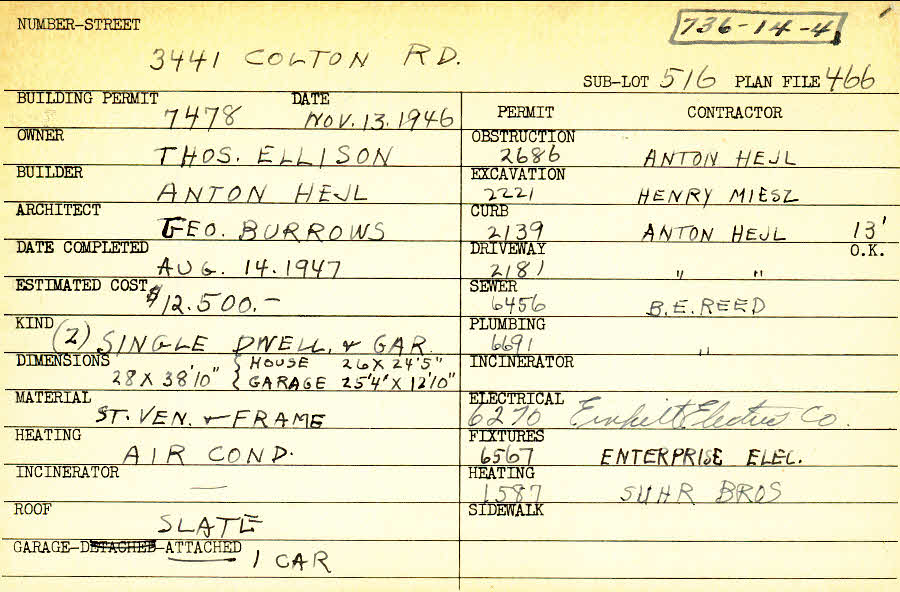 NUMBER-STREET
736-14-4
3441 COLTON RD.
SUB-LOT 516 PLAN FILE 466
BUILDING PERMIT DATE
7478 NOV. 13. 1946
OWNER
THOS. ELLISON
BUILDER
ANTON HEJL
ARCHITECT
GEO. BURROWS
DATE COMPLETED
AUG. 14. 1947
ESTIMATED COST
$12.500.-
KIND
(2) SINGLE DWELL. & GAR.
DIMENSIONS
28 X 38'10" { HOUSE 26 X 24'5"
GARAGE 25'4" X 12'10"
MATERIAL
ST. VEN. & FRAME
HEATING
AIR COND.
INCINERATOR
—
ROOF
SLATE
GARAGE-DETACHED-ATTACHED
1 CAR
PERMIT CONTRACTOR
OBSTRUCTION
2686 ANTON HEJL
EXCAVATION
2221 HENRY MIESZ
CURB
2139 ANTON HEJL 13'
DRIVEWAY O.K.
2181 " "
SEWER
6456 B.E. REED
PLUMBING
6691 "
INCINERATOR
ELECTRICAL
6270 Electric Co.
FIXTURES
6567 ENTERPRISE ELEC.
HEATING
1587 SUHR BROS
SIDEWALK